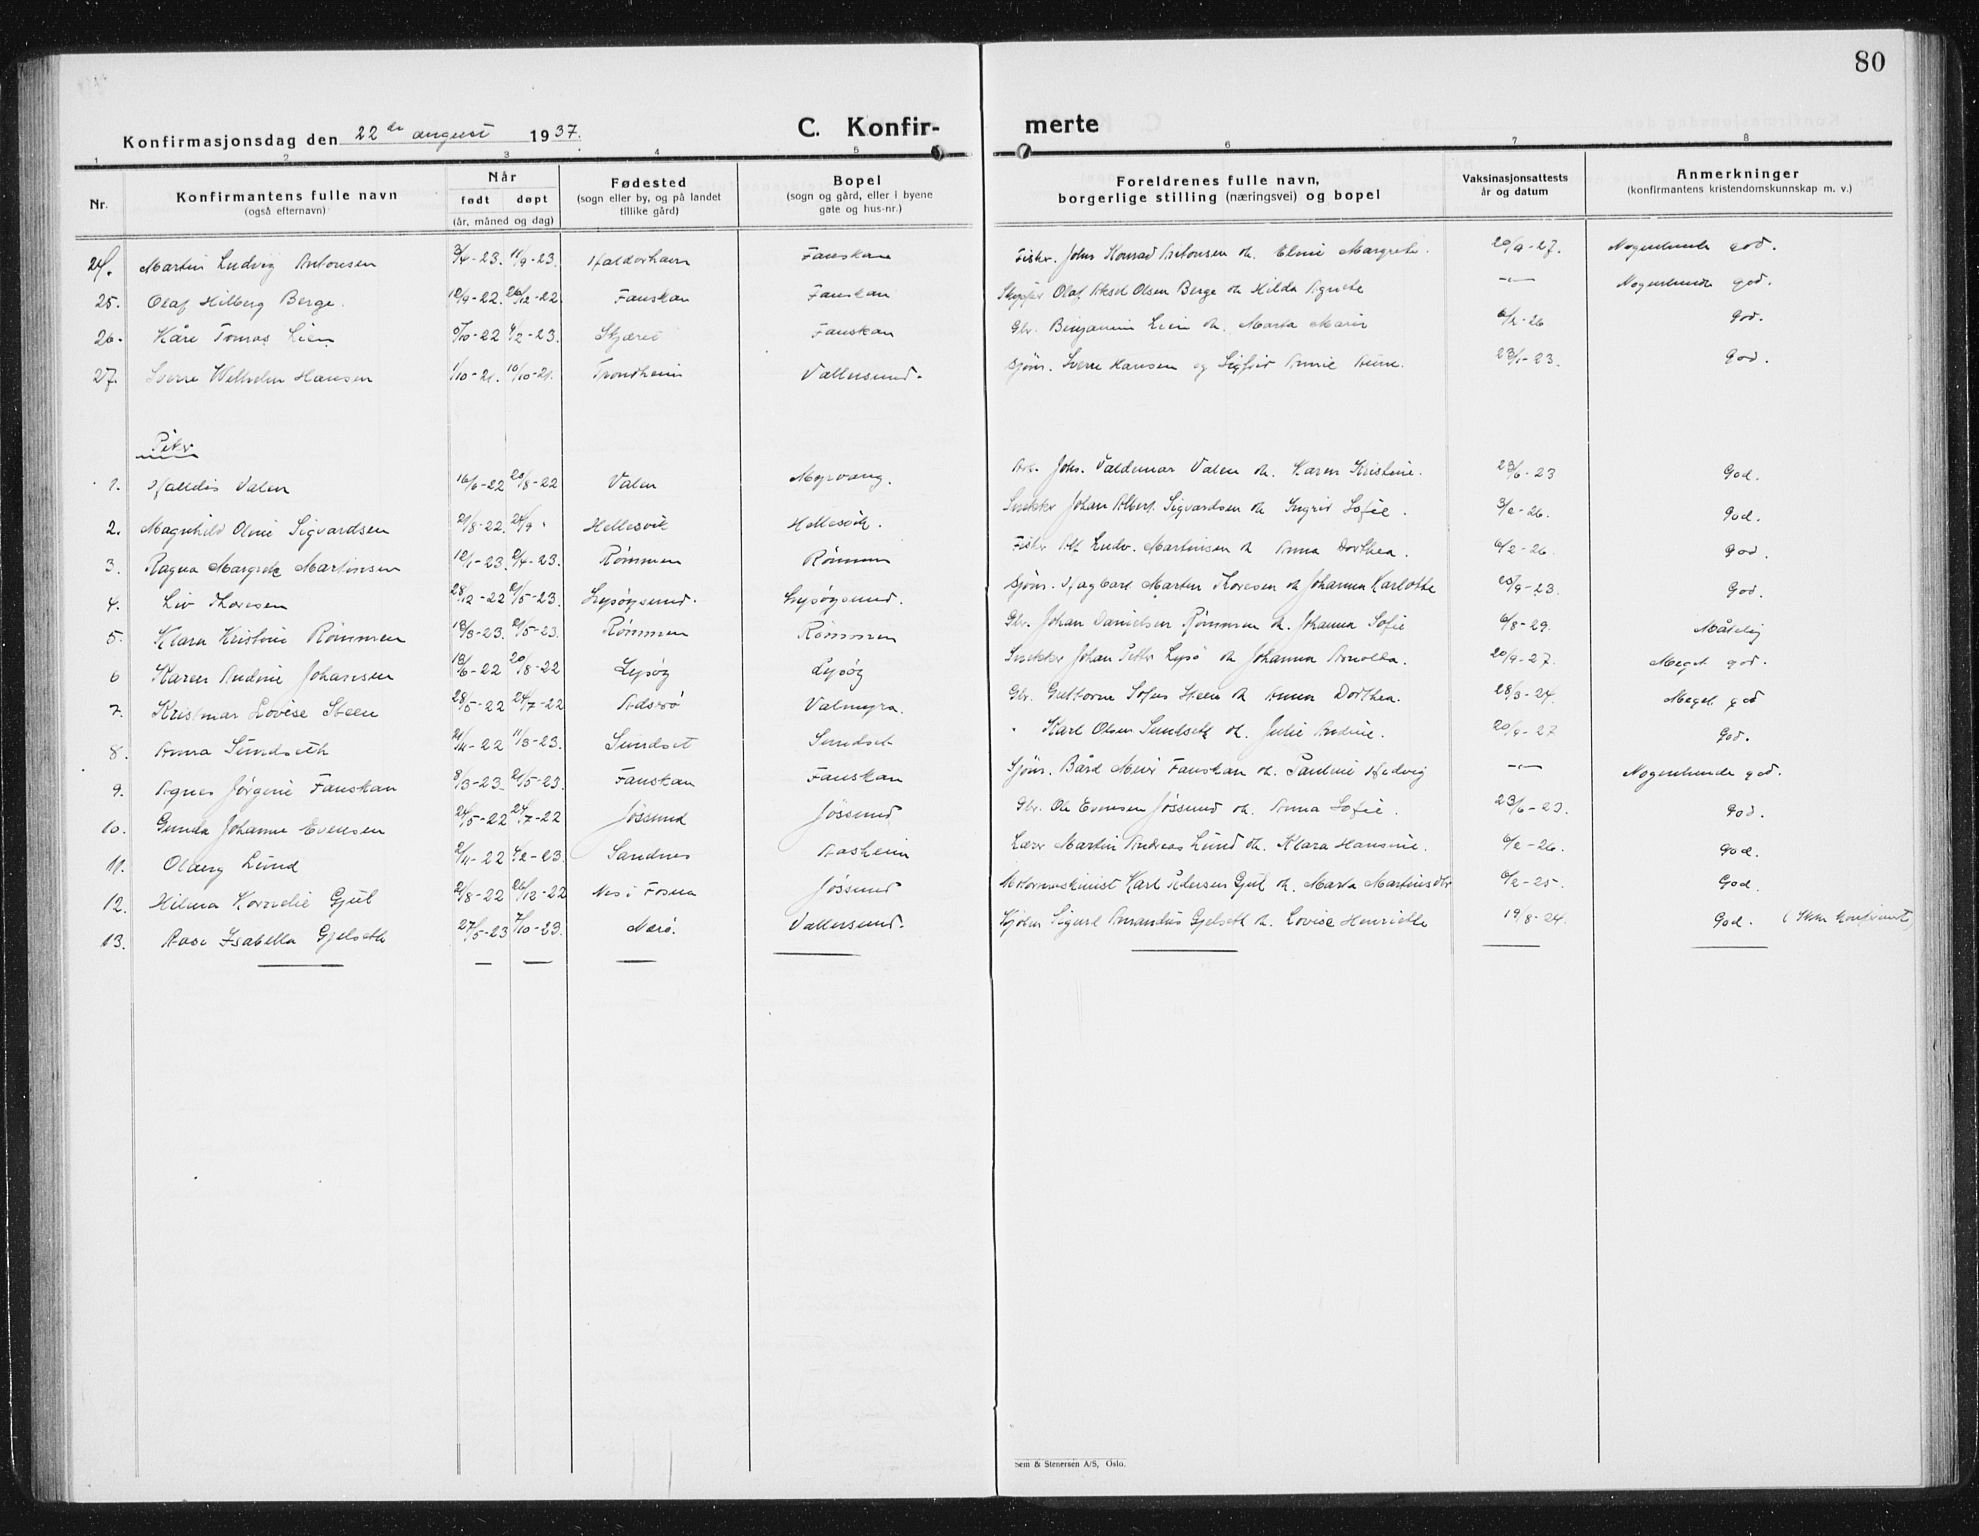 80
Konfirmasjonsdag den 22de august 1937.
C. Konfir- merte
1 2 3 4 5 6 7 8
Nr.
Konfirmantens fulle navn
(også efternavn)
Når
født døpt
(år, måned og dag)
Fødested
(sogn eller by, og på landet
tillike gård)
Bopel
(sogn og gård, eller i byene
gate og hus-nr.)
Foreldrenes fulle navn,
borgerlige stilling (næringsvei) og bopel
Vaksinasjonsattests
år og datum
Anmerkninger
(konfirmantens kristendomskunnskap m. v.)
24. Martin Ludvig Antonsen 3/4-23. 11/9-23. Fanskan Fisker John Konrad Antonsen oh. Eline Margrete. 20/9-27. Nogenlunde god.
25. Olaf Hilberg Berge. 10/9-22. 26/12-22 Fanskan Fanskan Skipper Olaf Aksel Olsen Berge oh Hilda Agnete -"- Nogenlunde god.
26. Kåre Tomas Lien 4/2-23. Fanskan Gbr. Benjamin Lien oh. Marta Marie God.
27. Sverre Wilhelm Hansen 1/10-21. 10/10-21. Trondheim Vallersund. Sjøm. Sverre Hansen og Sigfrid Annie Aune. 23/1-23. God.
Piker
1. Halldis Valen 16/6-22 20/8-22 Valen Myrvang. Arb. Johs. Valdemar Valen oh. Karen Kristine. 23/6-23 God.
2. Magnhild Oline Sigvardsen 21/8-22. 24/9 " Hellesvik Hellesvik. Snekker Johan Albert Sigvardsen oh Ingrid Sofie. God.
3. Ragna Margrete Martinsen Rømmen Rømmen Fisker Alf Ludv. Martinsen oh Anna Dorthea. God.
4. Liv Thoresen 28/12-22 21/5-23. Lysøysund. Lysøysund. Sjøm. Martin Thoresen oh Johanna Karlotte 25/9-23. God.
5. Klara Kristine Rømmen 21/5-23. Rømmen Rømmen Gbr. Johan Danielsen Rømmen oh. Johanna Sofie Måtelig
6 Karen Andine Johansen 20/8-22 Lysøy Lysøy Snekker Johan Petter Lysø oh Johanna 20/9-27. Meget god.
7. Kristmar Lovise Steen 28/5-22 24/7-22 Valmyra. Gbr. Guttorm Sofus Steen oh Anna Dorthea. 28/3-24. Meget god
8. Anna Sundseth 21/11-22 11/3-23. Sundset Sundset " Karl Olsen Sundseth oh. Julie Andine. 20/9-27 God.
9. Agnes Jørgine Fanskan 8/3-23. 21/5-23. Fanskan Fanskan Sjøm. Bård Meier Fanskan oh. Pauline Hedvig -"- Nogenlunde god.
10. Gunda Johanne Evensen 24/5-22 24/7-22 Jøssund Jøssund. Gbr. Ole Evensen Jøssund oh. Anna Sofie. 23/6-23. God.
11. Olaug Lund 4/2-23. Sandnes Aasheim Lærer Martin Andreas Lund oh. Klara Hansine. God.
12. Hilma Kornelie Gjul 21/8-22 26/12-22 Nes i Fosna Jøssund Motormaskinist Karl Pedersen Gjul oh. Marta Martinsdtr God.
13. Aase Isabella Gjelseth 27/5-23 7/10-23. Nærø. Vallersund. Sigurd Amandus Gjelseth oh. Lovise Henriette 19/8-24. God. (Ikke konfirmert)
Sem & Stenersen A/S, Oslo.